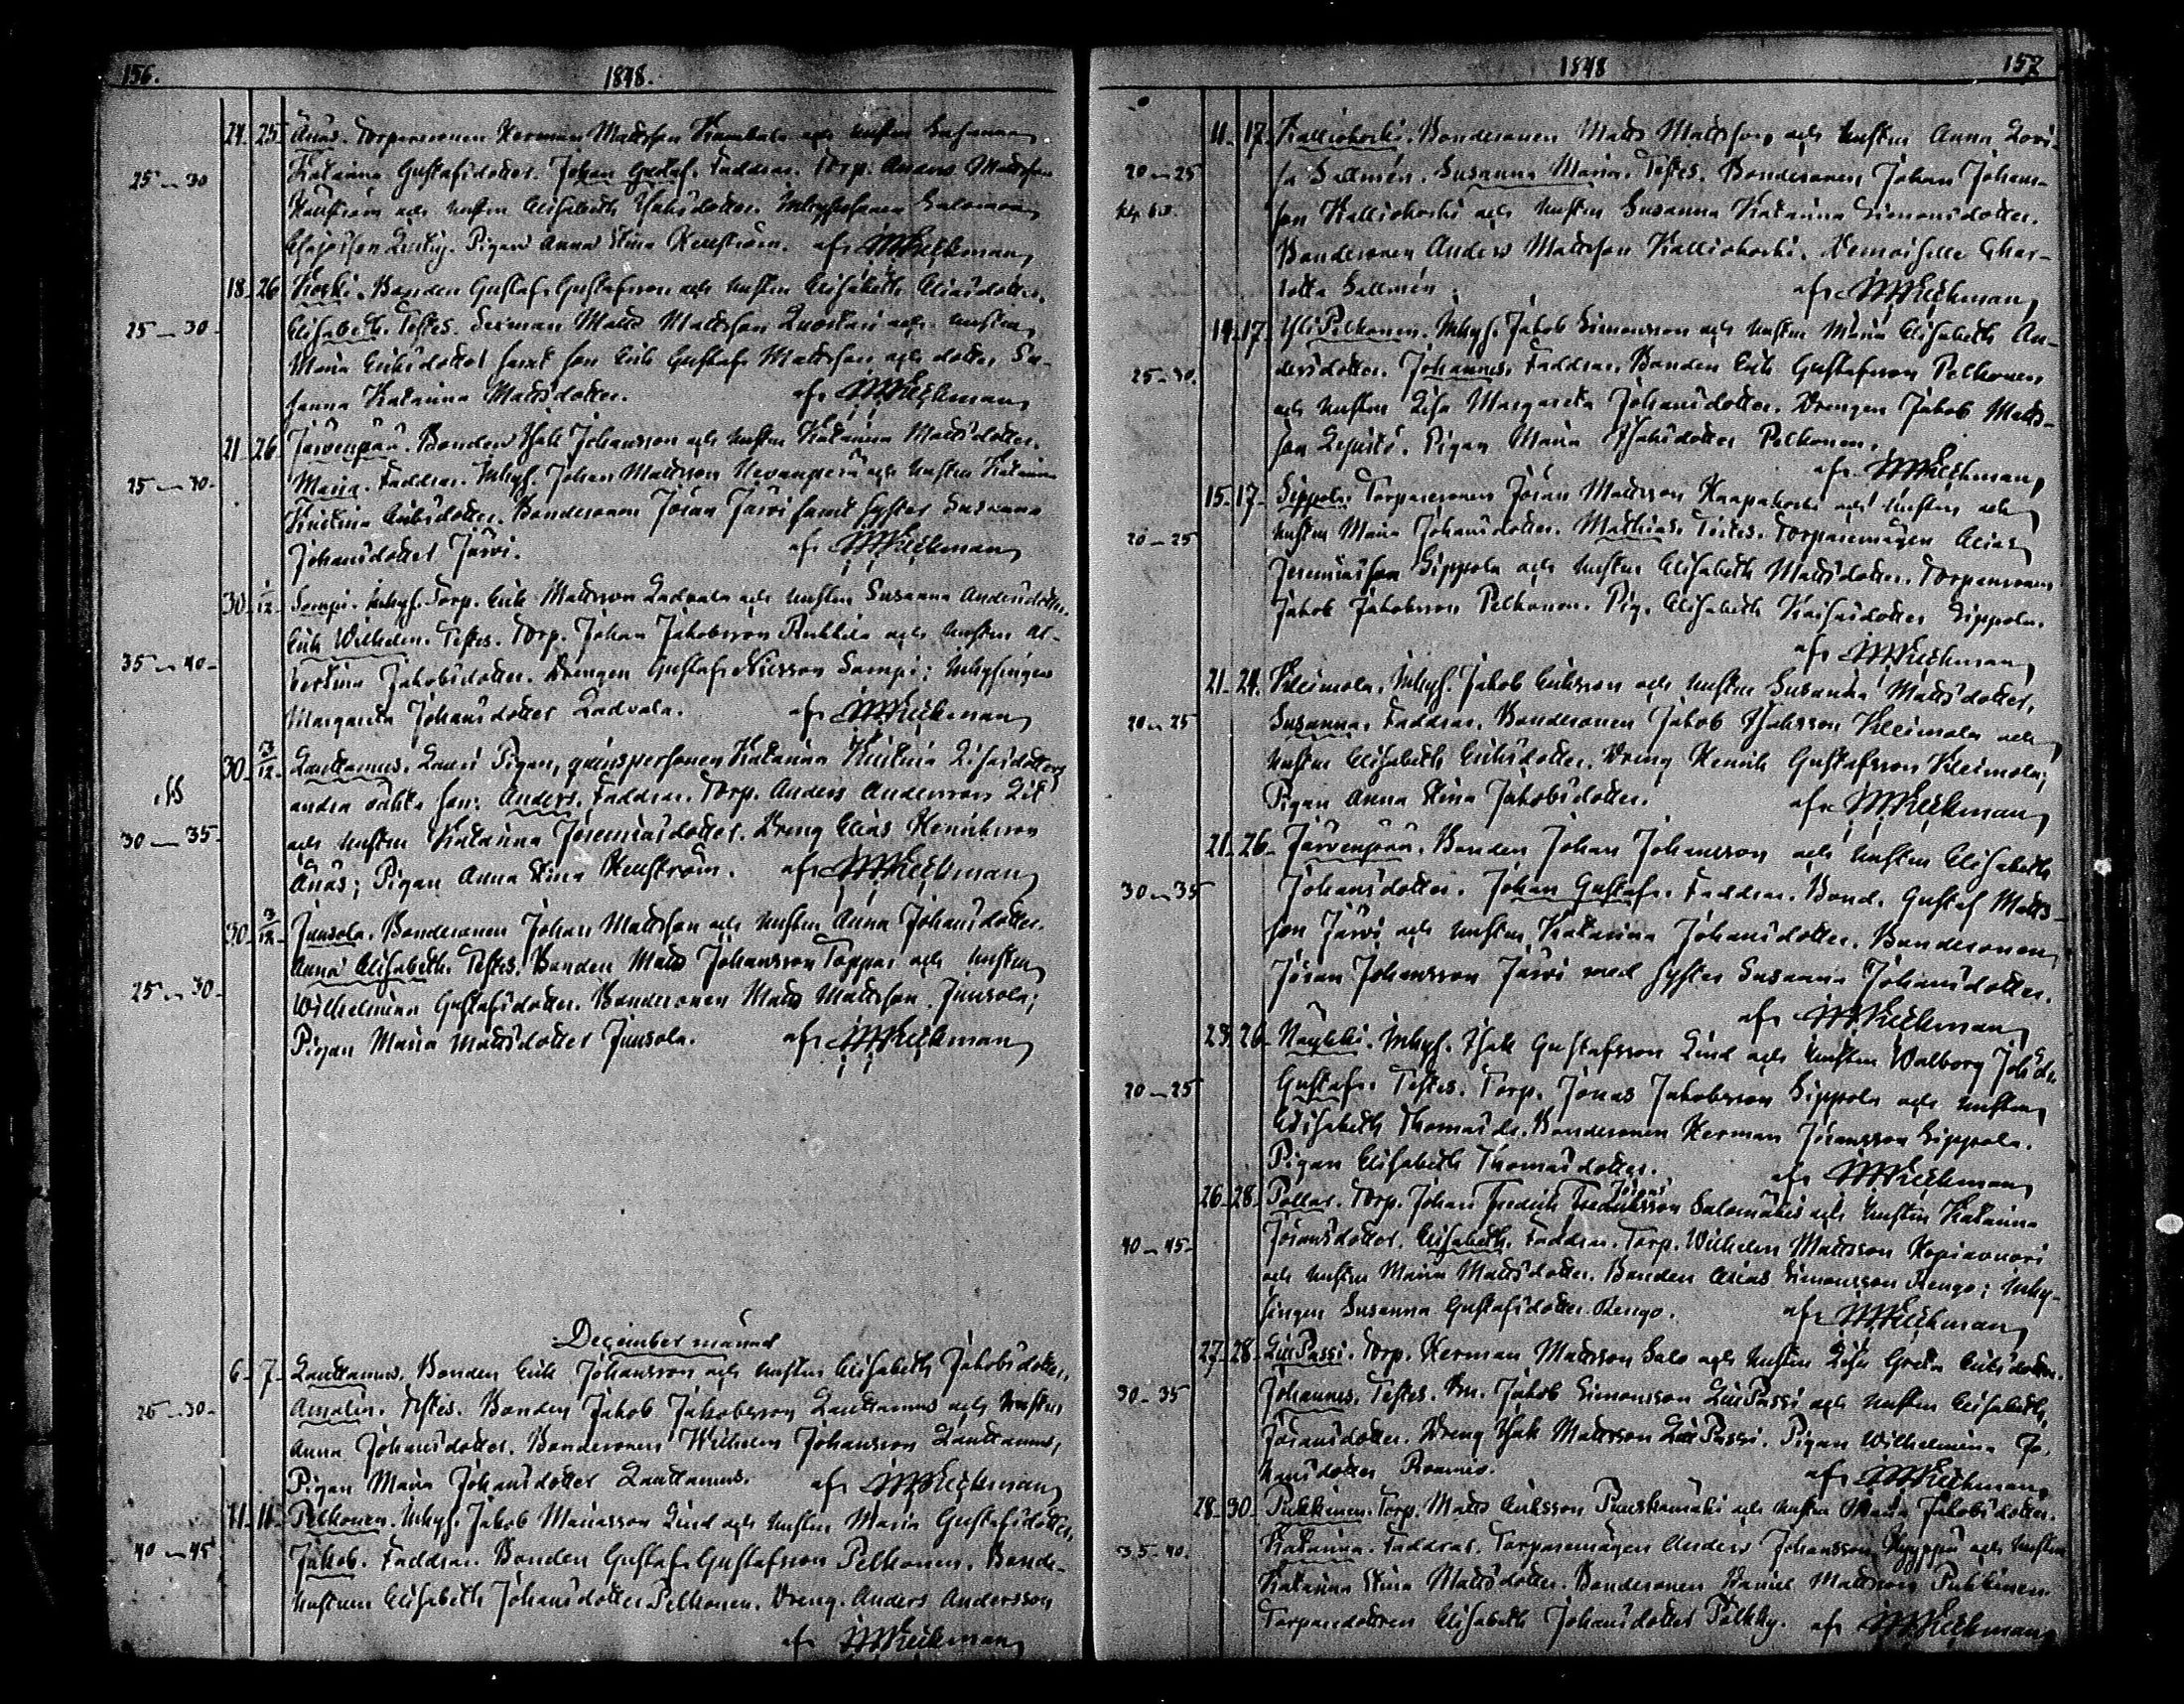 156. 1848.
24. 25. Änäs. Torparesonen Herman Mattsson Kambala och hustrun Susanna
25–30 Katarina Gustafsdotter. Johan Gustaf. Faddrar. Torp. Anders Mattsson
och hustrun Elisabeth Isaksdotter. Salomon
Pigan Anna Stina Renström. af
18. 26. Koski. Bonden Gustaf Gustafsson och hustrun Elisabeth Eliasdotter.
25–30. Elisabeth. Testes. Sexman Matts Mattsson och hustrun
Maria Eriksdotter samt son Erik Gustaf Mattsson och dotter Su-
sanna Katarina Mattsdotter. af
21. 26. Järvenpää. Bonden Isak Johansson och hustrun Katarina Mattsdotter.
25–30. Maria. Faddrar. Inhys. Johan Mattsson Nevanperä och hustrun Katarina
Kristina Eriksdotter. Bondesonen Jöran Järvi samt syster Susanna
Johansdotter Järvi. af
30. /12. Sompi. Inhys. Torp. Erik Mattsson Ladvala och hustrun Susanna Andersdotter.
Erik Wilhelm. Testes. Torp. Johan Jakobsson och hustrun Al-
35–40. bertina Jakobsdotter. Drengen Gustaf Nilsson Sompi; Inhysingen
Margareta Johansdotter Ladvala. af
30. 3/12. Lauttamus. Pigan, qvinspersonen Katarina Kristina
andra oäkta son: Anders. Faddrar. Torp. Anders Andersson
30–35. och hustrun Katarina Jeremiasdotter. Dreng Elias Henriksson
Änäs; Pigan Anna Stina Renström. af
30. 3/12. Juusola. Bondesonen Johan Mattsson och hustrun Anna Johansdotter.
Anna Elisabeth. Testes. Bonden Matts Johansson Toppari och hustrun
25–30. Wilhelmina Gustafsdotter. Bondesonen Matts Mattsson Juusola;
Pigan Maria Mattsdotter Juusola. af
December månad
6. 7. Lauttamus. Bonden Erik Johansson och hustrun Elisabeth Jakobsdotter.
25–30. Amalia. Testes. Bonden Jakob Jakobsson Lauttamus och hustrun
Anna Johansdotter. Bondesonen Wilhelm Johansson Lauttamus;
Pigan Maria Johansdotter Lauttamus. af
11. Pelkonen. Inhys. Jakob Mariasson Lind och hustrun Maria Gustafsdotter.
40–45 Jakob. Faddrar. Bonden Gustaf Gustafsson Pelkonen. Bonde-
hustrun Elisabeth Johansdotter Pelkonen. Dreng. Anders Andersson
af
1848 157
11. 17. Kalliokoski. Bondesonen Matts Mattsson och hustrun Anna Lovi-
20–25 sa Sallmén. Susanna Maria. Testes. Bondesonen Johan Johans-
son Kalliokoski och hustrun Susanna Katarina Simonsdotter.
Bondesonen Anders Mattsson Kalliokoski. Demoiselle Char-
lotta Sallmén. af
14. 17. Yli Pelkonen. Inhys. Jakob Simonsson och hustrun Maria Elisabeth An-
25–30. dersdotter. Johannes. Faddrar. Bonden Erik Gustafsson Pelkonen
och hustrun Lisa Margareta Johansdotter. Drengen Jakob Matts-
son Pigan Maria Isaksdotter Pelkonen.
af
15. 17. Sippola. Torparesonen Jöran Mattsson Haapakoski och hustrun och
20–25 hustrun Maria Johansdotter. Mathias. Testes. Torparemågen Elias
Jeremiasson Sippola och hustrun Elisabeth Mattsdotter. Torparesonen
Jakob Jakobsson Pelkonen. Pig. Elisabeth Kaisasdotter Sippola.
af
21. 24. Kleimola. Inhys. Jakob Eriksson och hustrun Susanna Mattsdotter.
20–25 Susanna. Faddrar. Bondesonen Jakob Isaksson Kleimola och
hustrun Elisabeth Eriksdotter. Dreng Henrik Gustafsson Kleimola;
Pigan Anna Stina Jakobsdotter. af
21. 26. Järvenpää. Bonden Johan Johansson och hustrun Elisabeth
30–35 Johansdotter. Johan Gustaf. Faddrar. Bond. Gustaf Matts-
son Järvi och hustrun Katarina Johansdotter. Bondesonen
Jöran Johansson Järvi med syster Susanna Johansdotter.
af
23. 26. Näykki. Inhys. Isak Gustafsson Lind och hustrun Walborg
20–25 Gustaf. Testes. Torp. Jonas Jakobsson Sippola och hustrun
Elisabeth Thomasdr. Bondesonen Herman Jöransson Sippola.
Pigan Elisabeth Thomasdotter. af
26. 28. Pollari. Torp. Johan Fredrik Salomäki och hustrun Katarina
40–45. Jöransdotter. Elisabeth. Faddrar. Torp. Wilhelm Mattsson Kopiavuori
och hustrun Maria Mattsdotter. Bonden Elias Simonsson Rengo; Inhy-
singen Susanna Gustafsdotter Rengo. af
27. 28. Lill Passi. Torp. Herman Mattsson Salo och hustrun Lisa Greta Eriksdotter.
30–35 Johannes. Testes. Bn. Jakob Simonsson Lill Passi och hustrun Elisabeth
Jöransdotter. Dreng Isak Mattsson Lill Passi. Pigan Wilhelmina Jo-
hansdotter af
28. 30. Pukkinen. Torp. Matts Eriksson och hustrun Maria Jakobsdotter.
35–40. Katarina. Faddrar. Torparemågen Anders Johansson och hustrun
Katarina Stina Mattsdotter. Bondesonen Daniel Mattsson Pukkinen.
Torparedottren Elisabeth Johansdotter Pölkky. af